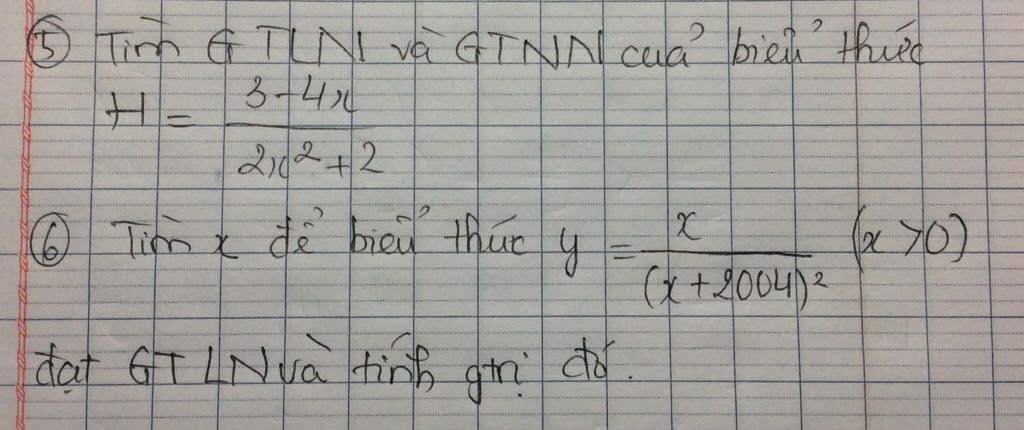 ⑤ Tìm GTLN và GTNN của biểu thức
H = \frac{3-4x}{2x^2+2}
⑥ Tìm x để biểu thức y = \frac{x}{(x+2004)^2} (x>0)
đạt GTLN và tính gtrị đó.